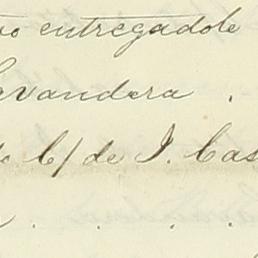 entregadole
Lavandera .
C/ de J. Cas
. . . .